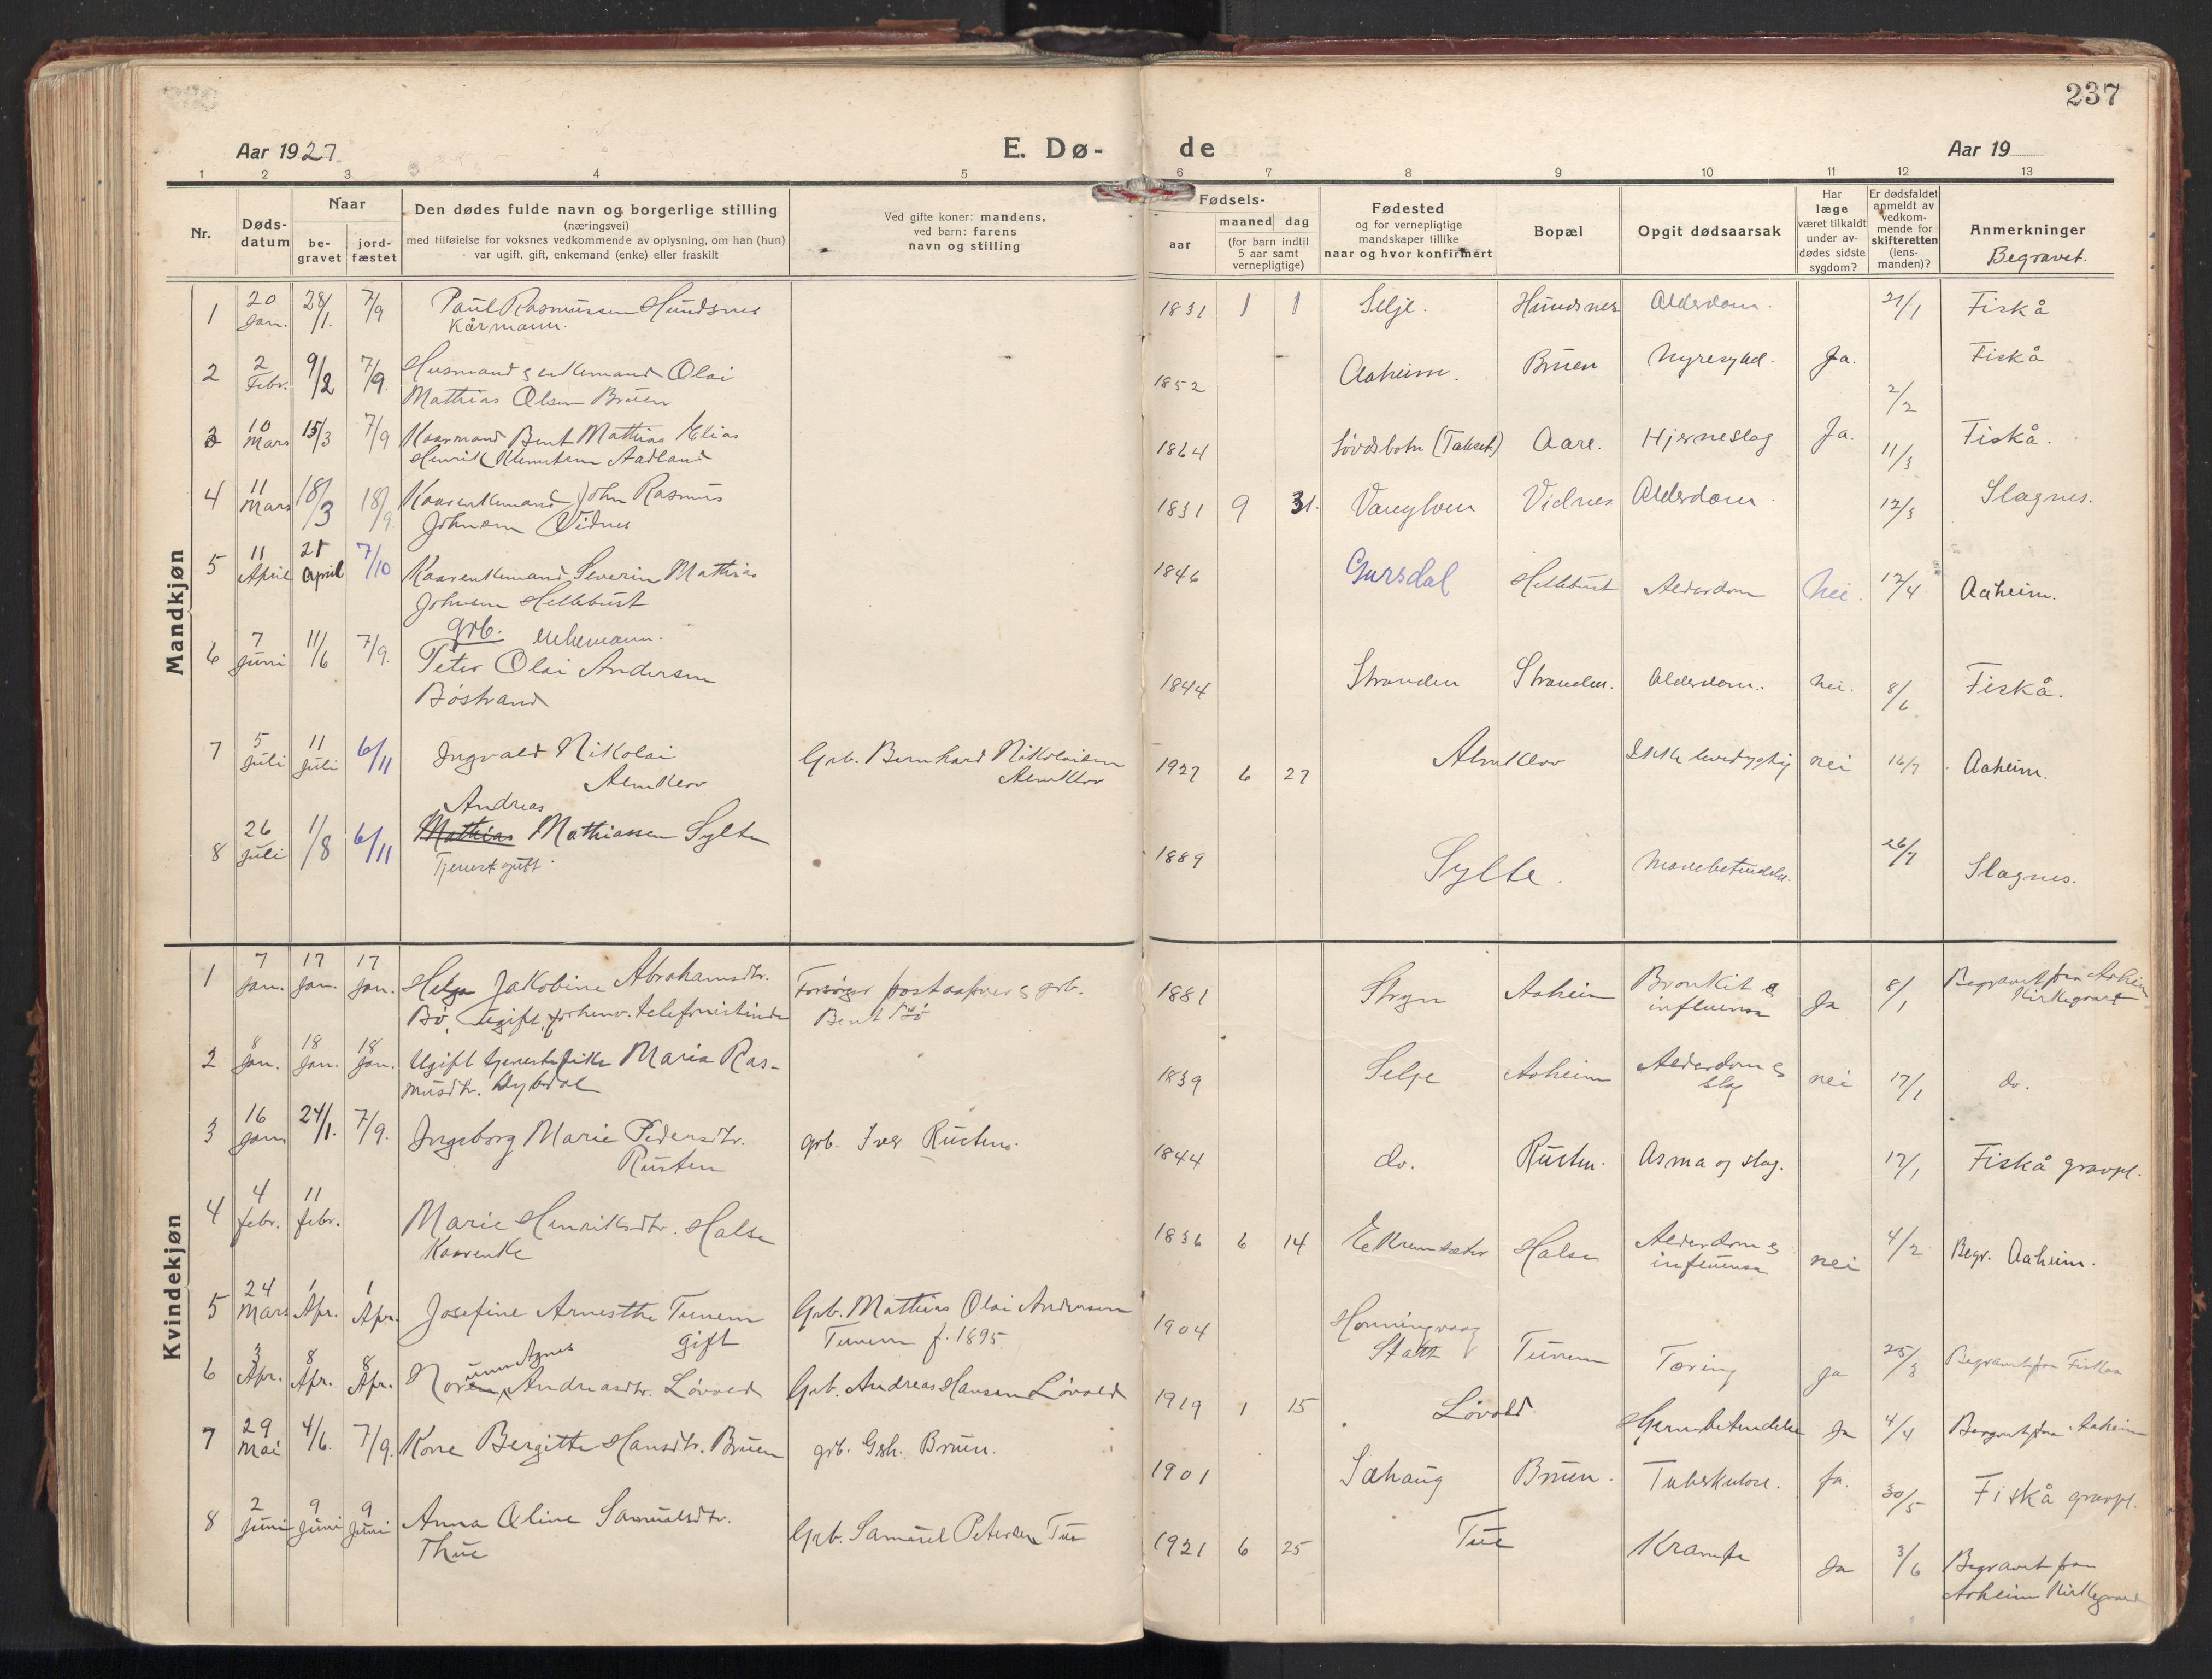 237
Aar 1927
E. Dø-
de
Aar 19
1 2 3 4 5 6 7 8 9 10 11 12 13
Nr.
Døds-
datum
Naar
be-
gravet
jord-
fæstet
Den dødes fulde navn og borgerlige stilling
(næringsvei)
med tilføielse for voksnes vedkommende av oplysning, om han (hun)
var ugift, gift, enkemand (enke) eller fraskilt
Ved gifte koner: mandens,
ved barn: farens
navn og stilling
Fødsels-
aar
maaned dag
(for barn indtil
5 aar samt
vernepligtige)
Fødested
og for vernepligtige
mandskaper tillike
naar og hvor konfirmert
Bopæl
Opgit dødsaarsak
Har
læge
været tilkaldt
under av-
dødes sidste
sygdom?
Er dødsfaldet
anmeldt av
vedkom-
mende for
skifteretten
(lens-
manden)?
Anmerkninger
Begravet.
Mandkjøn
1 20 Jan. 28/1. 7/9 Paul Rasmussen Hundsnes 1831 1 1 Selje. Hundsnes Alderdom. 21/1 Fiskå
Kårmann.
2 2 Febr. 9/2 7/9. Husmand & enkemand Olai 1852 Aaheim. Bruen Nyresykd. Ja. 2/2 Fiskå
Mathias Olsen Bruen
3 10 Mars 15/3 7/9 Kaarmand Bent Mathias Elias 1864 Løvdsbotn (Takset.) Aare. Hjerneslag Ja. 11/3 Fiskå.
Henrik Klemetsen Aadland
4 11 Mars 18/3 18/9. Kaarenkemand John Rasmus 1831 9 31. Vanylven Vidnes Alderdom. 12/3 Slagnes.
Johnsen Vidnes
5 11 April 21 april 7/10 Kaarenkemand Severin Mathias 1846 Gursdal Hellebust Alderdom Nei. 12/4 Aaheim.
Johnsen Hellebust
grb. enkemann.
6 7 Juni 11/6 7/9. Peter Olai Andersen 1844 Stranden Stranden. Alderdom. nei. 8/6 Fiskå.
Böstrand
7 5 Juli 11 Juli 6/11 Ingvald Nikolai Grb. Bernhard Nikolaisen 1927 6 27 Almklov Ikke levedygtig nei 16/7 Aaheim.
Almklov Almklov
Andreas
8 26 Juli 1/8 6/11 Mathias Mathiassen Sylte 1889 Sylte. Mavebetendelse. 26/7 Slagnes.
Tjenestgutt.
Kvindekjøn
1 7 Jan. 17 Jan. 17 Jan. Helga Jakobine Abrahamsdtr. Forsörger postaapner & grb. 1881 Stryn Aaheim Bronkit & Ja 8/1 Begravet fra Aaheim
Bö, Ugift, forhenv. telefonistinde Bent Bö influensa Kirkegaard
2 8 Jan. 18 Jan. 18 Jan. Ugift tjenestepike Maria Ras- 1839 Selje Aaheim Alderdom & nei 17/1 do.
musdtr. Dybdal slag
3 16 Jan. 24/1. 7/9. Ingeborg Marie Pedersdtr. grb. Iver Rusten. 1844 do. Rusten. Asma og slag. 17/1 Fiskå gravpl.
Rusten
4 4 febr. 11 febr. Marie Henriksdtr. Halse 1836 6 14 Ekremsæter Halse Alderdom & nei 4/2 Begr. Aaheim.
Kaarenke influensa
5 24 Mars 1 Apr. 1 Apr. Josefine Arnesthe Tunem Grb. Mathias Olai Andersen 1904 Honningvaag Tunem Tæring Ja 25/3 Begravet fra Fiskaa
gift Tunem f. 1895 Statt
unn Agnes
6 3 Apr. 8 Apr. 8 Apr. Noren Andreasdtr. Lövold Grb. Andreas Hansen Lövold 1919 1 15 Lövold. Hjernebetendelse Ja 4/4 Begravet fra Aaheim
7 29 Mai 4/6. 7/9. Kore Bergitte Hansdtr. Bruen grb. Gsh. Bruen. 1901 Sæhaug Bruen. Tuberkulose. Ja. 30/5 Fiskå gravpl.
8 2 Juni 9 Juni 9 Juni Anna Oline Samuelsdtr. Grb. Samuel Petersen Tue 1921 6 25 Tue Krampe Ja 3/6 Begravet fra
Thue Aaheim Kirkegaard